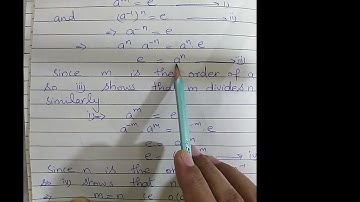 aᵐ = e → i)
and (a⁻¹)ⁿ = e → ii)
⇒ a⁻ⁿ = e
⇒ aⁿ a⁻ⁿ = aⁿ. e
e = aⁿ → iii)
Since m is the order of a
so iii) shows that m divides n
similarly
i) ⇒ aᵐ = e
a⁻ᵐ aᵐ = a⁻ᵐ. e
e = a⁻ᵐ
e =
Since n is the or
so iv) shows that n
⇒ m=n i.e